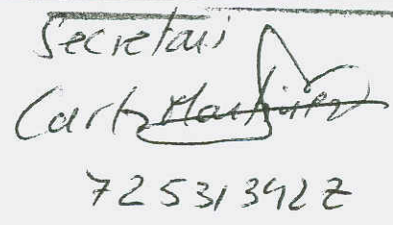 Secretari
Carlos Martínez
72531392Z